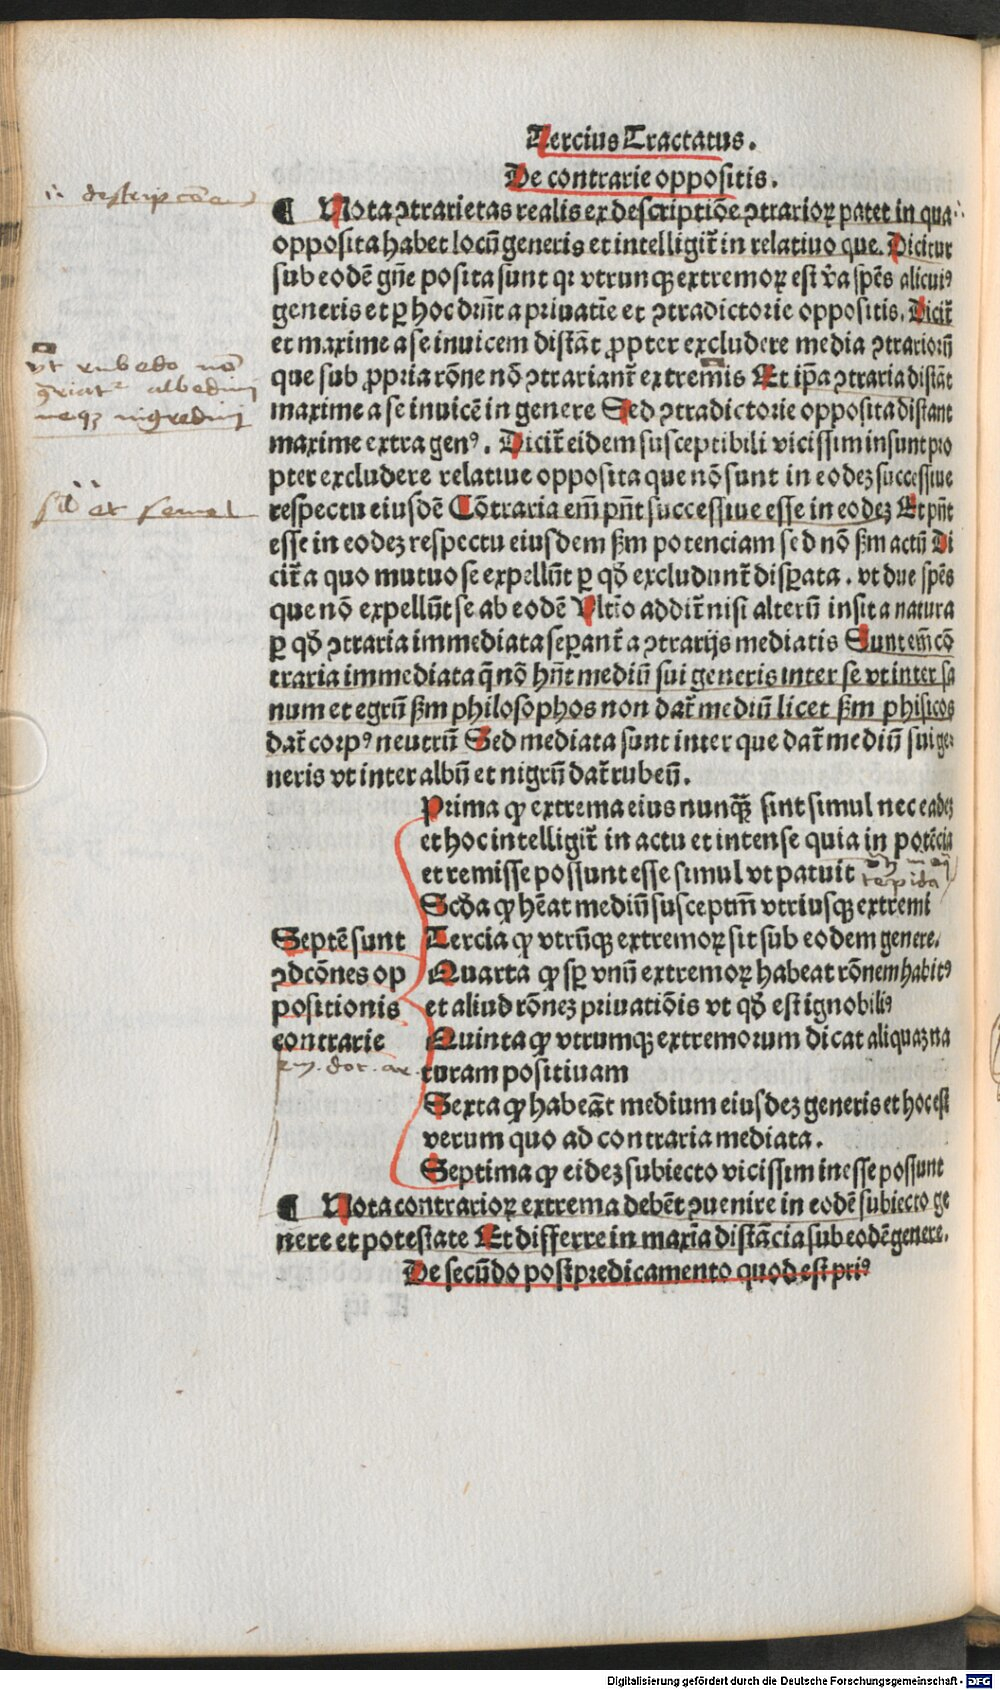 Tercius Tractatus.
De contrarie oppositis.
¶ Nota ꝯtrarietas realis ex descriptiõe ꝯtrarioꝝ patet in qua
opposita habet locũ generis et intelligit᷑ in relatiuo que. Dicitur
sub eodẽ gñe posita sunt qꝛ vtrunqꝫ extremoꝝ est v̾a spẽs alicuiꝰ
generis et ꝑ hoc drñt a priuatiẽ et ꝯtradictorie oppositis. Dicit᷑
et maxime a se inuicem distãt ꝓpter excludere media ꝯtrariorũ
que sub ꝓpria rõne nõ ꝯtrariant᷑ extremis Et ip̃a ꝯtraria distãt
maxime a se inuicẽ in genere Sed ꝯtradictorie opposita distant
maxime extra genꝰ. Dicit᷑ eidem susceptibili vicissim insunt pro
pter excludere relatiue opposita que nõ sunt in eodeꝫ successiue
respectu eiusdẽ Cõtraria em̃ pñt successiue esse in eodeꝫ Et pñt
esse in eodeꝫ respectu eiusdem ẞm potenciam sed nõ ẞm actũ Di
cit᷑ a quo mutuo se expellũt ꝑ qđ excludunt᷑ disꝑata. vt due spẽs
que nõ expellũt se ab eodẽ Vltĩo addit᷑ nisi alterũ insit a natura
ꝑ qđ ꝯtraria immediata seꝑant᷑ a ꝯtrarijs mediatis Sunt em̃ cõ
traria immediata q̃ nõ hñt mediũ sui generis inter se vt inter sa
num et egrũ ẞm philosophos non dat᷑ mediũ licet ẞm phisicos
dat᷑ corpꝰ neutrũ Sed mediata sunt inter que dat᷑ mediũ sui ge⸗
neris vt inter albũ et nigrũ dat᷑ rubeũ.
Prima ꝙ extrema eius nunq̃ꝫ sint simul nec eadeꝫ
et hoc intelligit᷑ in actu et intense quia in potẽcia
et remisse possunt esse simul vt patuit
tepida
Scđa ꝙ hẽat mediũ susceptiũ vtriusqꝫ extremi
Septẽ sunt
ꝯdcõnes op
positionis
contrarie
Tercia ꝙ vtrũqꝫ extremoꝝ sit sub eodem genere.
Quarta ꝙ sꝑ vnũ extremoꝝ habeat rõnem habitꝰ
et aliud rõneꝫ priuatiõis vt qđ est ignobiliꝰ
Quinta ꝙ vtrumqꝫ extremorum dicat aliquaꝫ na
turam positiuam
Sexta ꝙ habeãt medium eiusdeꝫ generis et hoc est
verum quo ad contraria mediata.
Septima ꝙ eideꝫ subiecto vicissim inesse possunt
¶ Nota contrarioꝝ extrema debẽt ꝯuenire in eodẽ subiecto ge
nere et potestate Et differre in maxĩa distãcia sub eodẽ genere.
De secũdo postpredicamento quod est priꝰ
vt rubedo nõ
ꝯriat᷑ albedini
neqꝫ nigredini
et semel
Digitalisierung gefördert durch die Deutsche Forschungsgemeinschaft - DFG